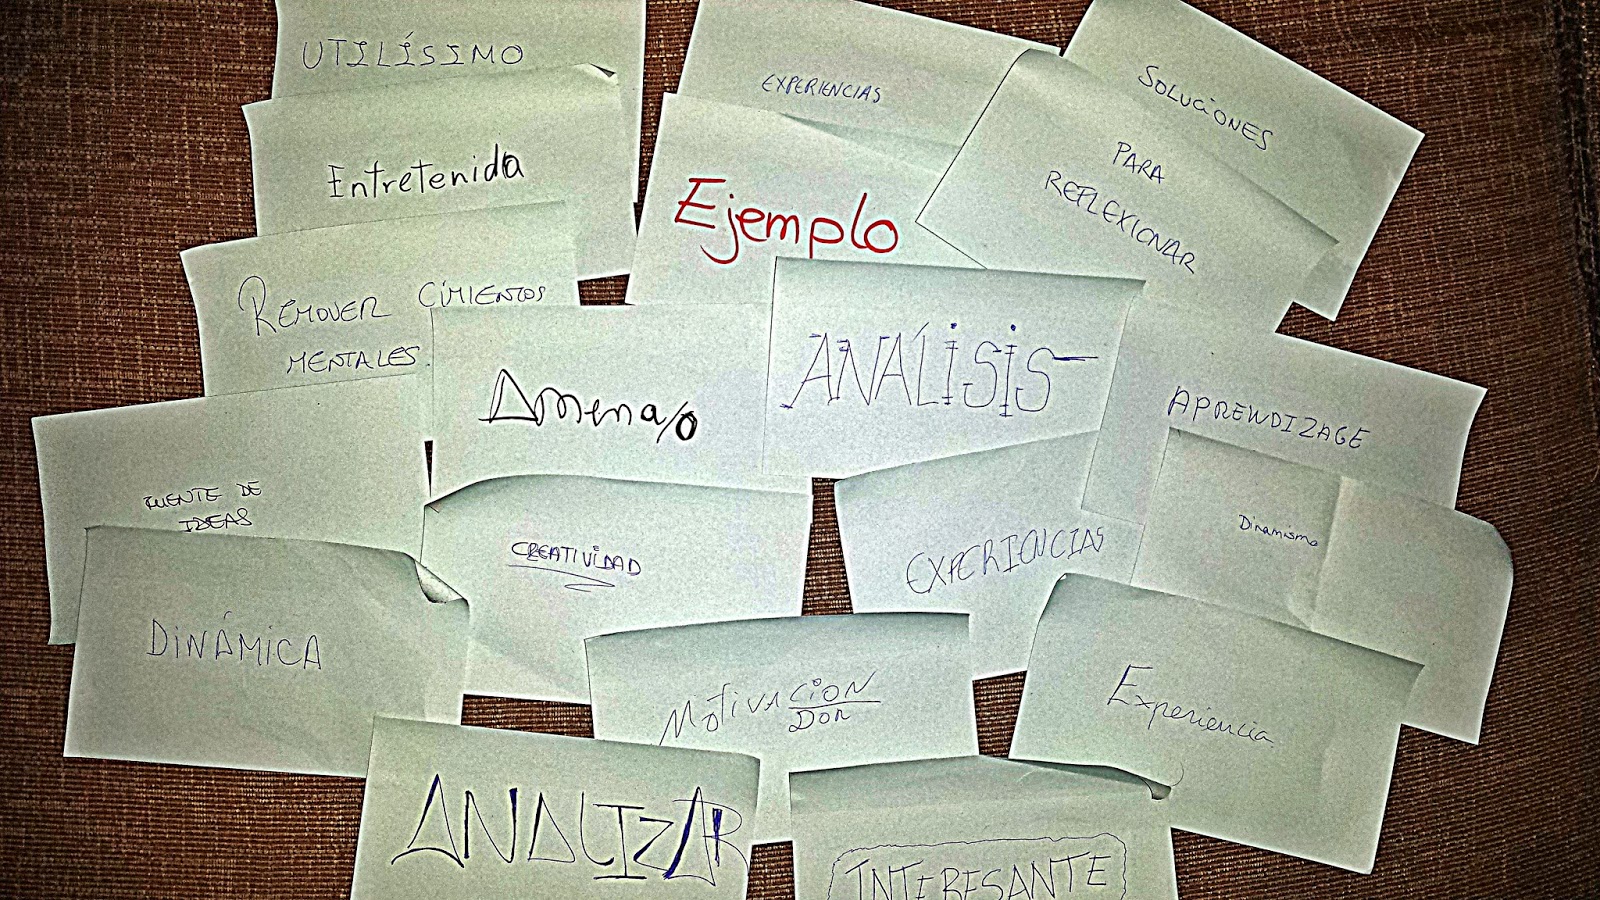 UTILÍSIMO
EXPERIENCIAS
SOLUCIONES
Entretenida
Ejemplo
PARA
REFLEXIONAR
REMOVER CIMIENTOS
MENTALES.
Amena/o
ANALÍSIS
APRENDIZAGE
FUENTE DE
IDEAS
CREATIVIDAD
EXPERIENCIAS
Dinamismo
DINÁMICA
MOTIVACION
DOR
Experiencia
ANALIZAR
INTERESANTE